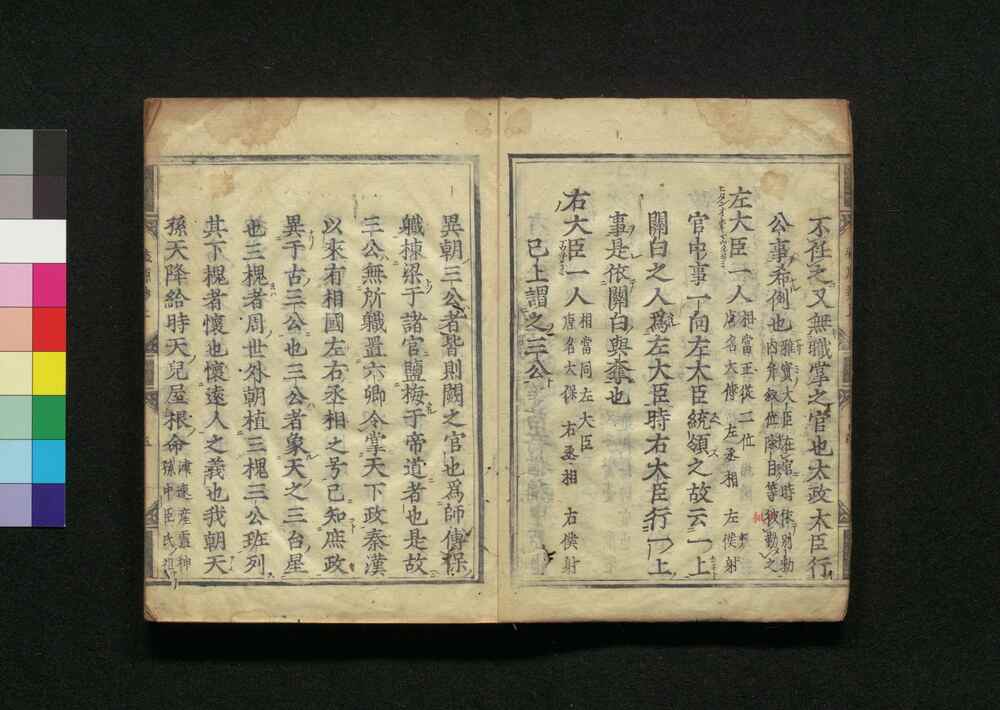 不任之又無職掌之官也太政大臣行
公事希例也雅實大臣在官時依別勅
内弁叙位除目等被勤之
左大臣一人相當正從二位
唐名太傅 左丞相 左僕射
官中事一向左大臣統領之故云一上
關白之人爲左大臣時右大臣行一上
事是依關白與奪也
右大臣一人相當同左大臣
唐名太保 右丞相 右僕射
已上謂之三公
異朝三公者皆則闕之官也爲師傅保
職棟梁于諸官鹽梅于帝道者也是故
三公無所職置六卿令掌天下政秦漢
以來有相國左右丞相之号已知庶政
異于古三公也三公者象天之三台星
也三槐者周世外朝植三槐三公班列
其下槐者懷也懷遠人之義也我朝天
孫天降給時天兒屋根命津速産靈神
孫中臣氏祖